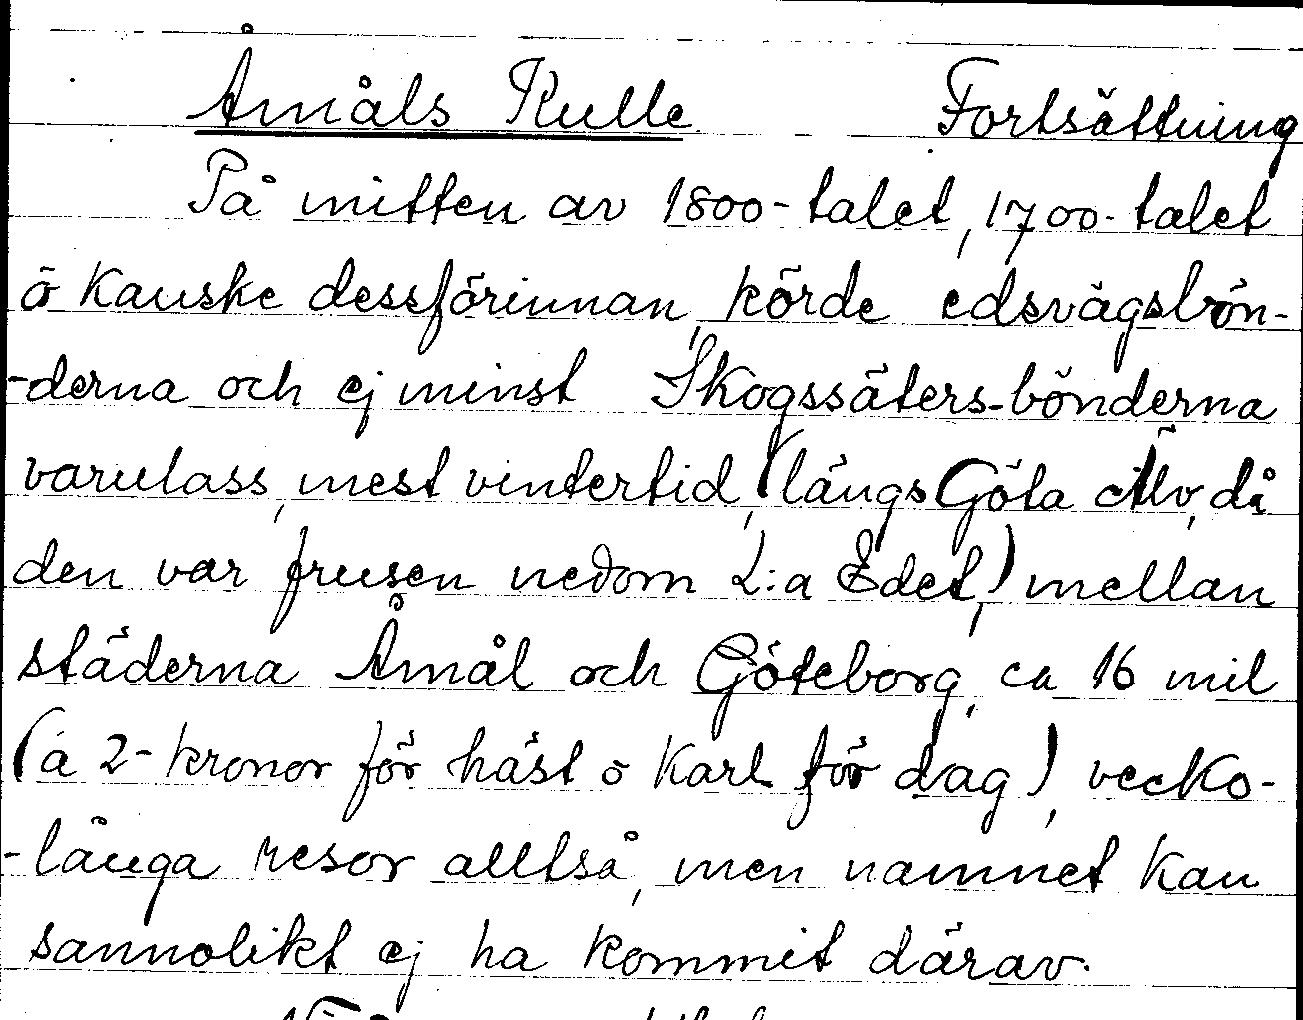 Åmåls Kulle Fortsättning
På mitten av 1800-talet, 1700-talet
ö kanske dessförinnan, körde edsvägsbön-
-derna och ej minst Skogssäters-bönderna
varulass, mest vintertid, (längs Göta Älv, då
den var frusen nedom L:a Edet,) mellan
städerna Åmål och Göteborg, ca 16 mil
(á 2-kronor för häst o karl för dag), vecko-
-långa resor alltså, men namnet kan
sannolikt ej ha kommit därav.